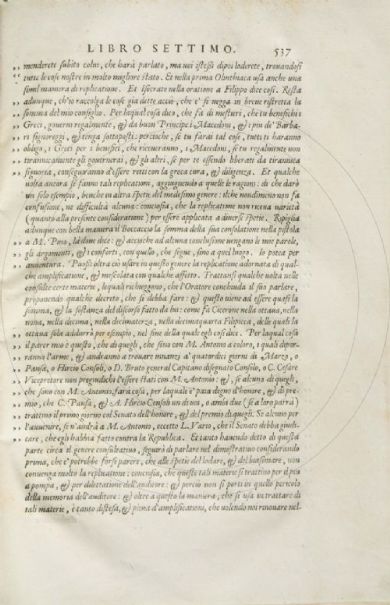 LIBRO SETTIMO. 537
„ menderete subito colui, che harà parlato, ma voi istessi dipoi loderete, trouandosi
„ tutte le cose nostre in molto migliore stato. Et nella prima Olinthiaca usa anche una
simil maniera di replicatione. Et Isocrate nella oratione a Filippo dice cosi. Resta
„ adunque, ch'io raccolga le cose già dette accio, che e' si uegga in breue ristretta la
„ somma del mio consiglio. Per laqual cosa dico, che fa di mestieri, che tu benefichi i
„ Greci, gouerni regalmente, & da buon Principe i Macedoni, & i piu de' Barba-
„ ri signoreggi, & tenga sottoposti: percioche, se tu farai tai cose, tutti ti haranno
„ obligo, i Greci per i benefici, che riceueranno, i Macedoni, se tu regalmente non
„ tirannicamente gli gouernerai, & gli altri, se per te essendo liberati da tirannica
„ signoria, conseguiranno d'essere retti con la greca cura, & diligenza. Et qualche
uolta ancora si fanno tali replicationi, aggiugnendo a quelle le ragioni: di che darò
un solo esempio, benche in altra spetie del medesimo genere: ilche nondimeno non fa
confusione, ne difficultà alcuna: conciosia, che la replicatione non riceua uarietà
(quanto alla presente consideratione) per essere applicata a diuersi spetie. Ripiglia
adunque con bella maniera il Boccaccio la somma della sua consolatione nella pistola
„ a M. Pino, là doue dice: & accioche ad alcuna conclusione uengano le mie parole,
„ gli argomenti, & i conforti, con quello, che segue, sino a quel luogo. Io potea per
„ auuentura. Puossi altra ciò usare in questo genere la replicatione adornata di qual-
che amplificatione, & mescolata con qualche affetto. Trattansi qualche uolta nelle
consulte certe materie, lequali richieggono, che l'Oratore concluda il suo parlare,
proponendo qualche decreto, che si debba fare: & questo uiene ad essere quasi la
somma, & la sostanza del discorso fatto da lui: come fa Cicerone nella ottaua, nella
nona, nella decima, nella decimaterza, nella decimaquarta Filippica, delle quali la
ottaua solo addurrò per esempio, nel fine della quale egli cosi dice. Per laqual cosa
„ il parer mio è questo, che di quegli, che sono con M. Antonio a coloro, i quali depor-
„ ranno l'arme, & andranno a trouare innanzi a' quatordici giorni di Marzo, o
„ Pansa, o Hircio Consoli, o D. Bruto general Capitano disegnato Consolo, o C. Cesare
„ Vicepretore non pregiudichi l'essere stati con M. Antonio: &, se alcuno di quegli,
„ che sono con M. Antonio, farà cosa, per laquale e' paia degno d'honore, & di pre-
„ mio, che C. Pansa, & A. Hircio Consoli un di uoi, o amendue (se a loro parrà)
„ trattino il primo giorno col Senato dell'honore, & del premio di quegli. Se alcuno per
„ l'auuenire, se n'andrà a M. Antonio, eccetto L. Vario, che il Senato debba giudi-
„ care, che egli habbia fatto contra la Republica. Et tanto hauendo detto di questa
parte circa il genere consultatiuo, seguirò di parlare nel dimostratiuo considerando
prima, che e' potrebbe forse parere, che alle spetie del lodare, & del biasimare, non
conuenga molto la replicatione: conciosia, che queste tali materie si trattino per il piu
a pompa, & per dilettatione dell'auditore: & perciò non si porti in quelle pericolo
della memoria dell'auditore: & oltre a questo la maniera, che si usa in trattare di
tali materie, è tanto distesa, & piena d'amplificationi, che uolendo noi rinouare nel-